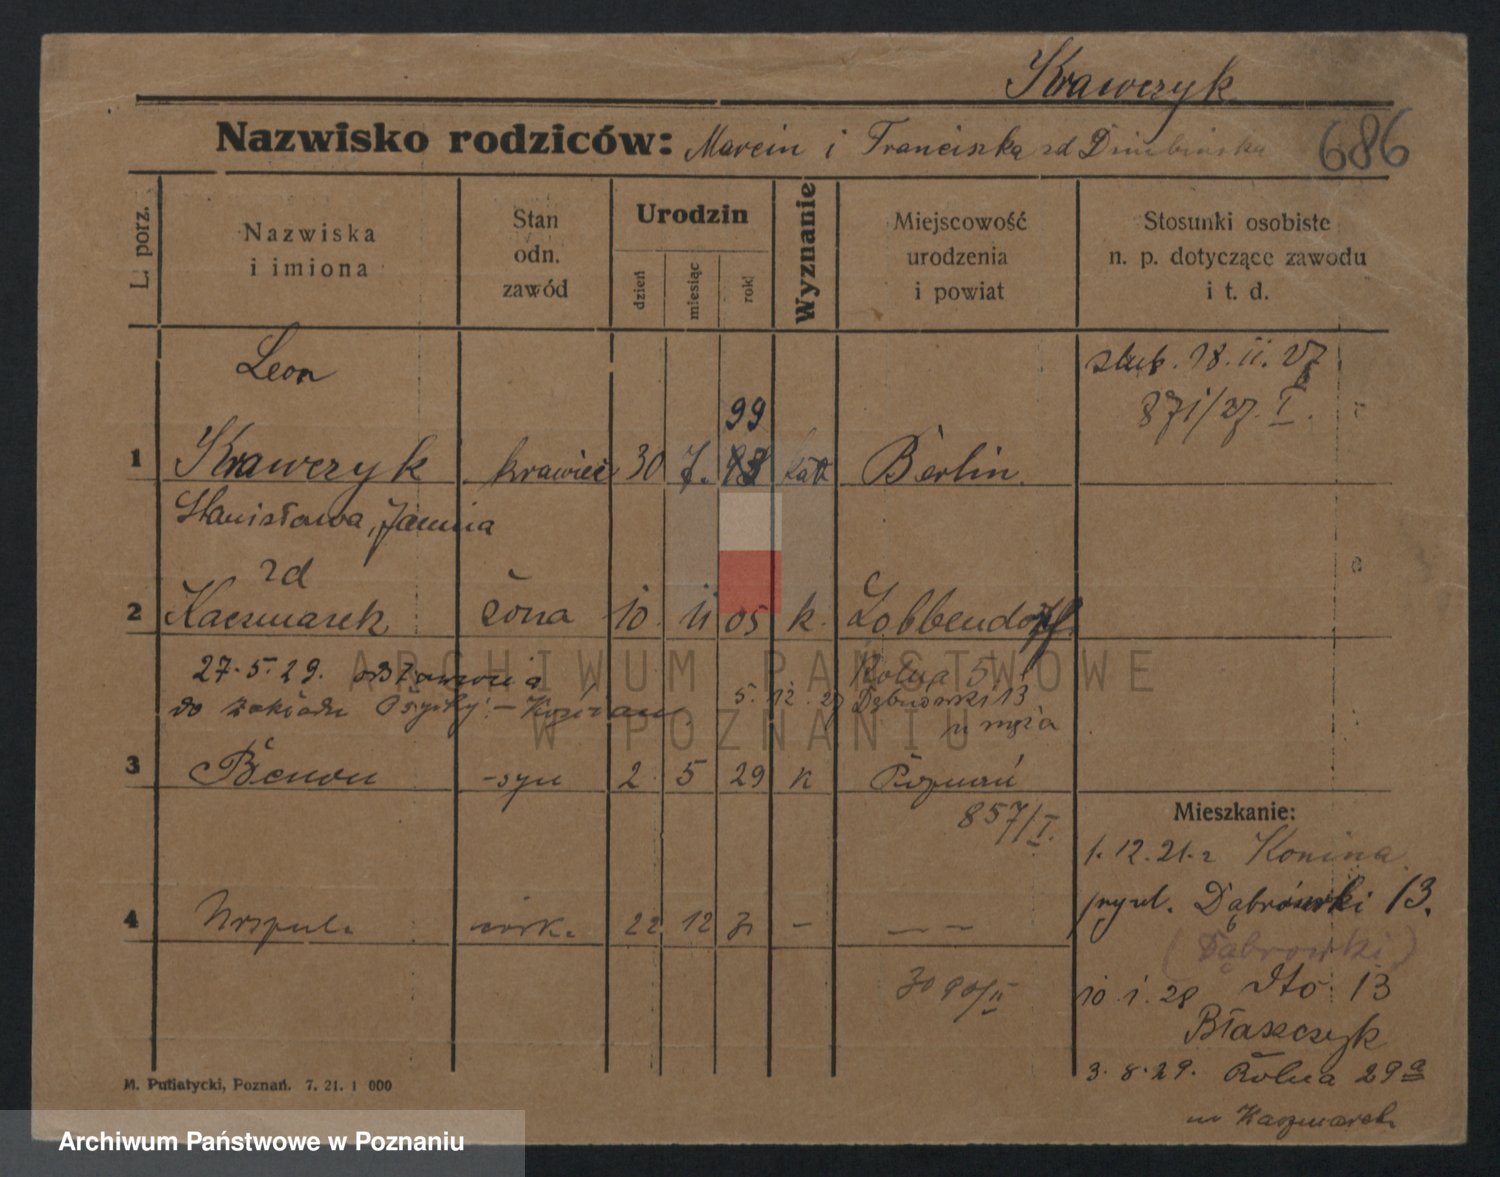 Krawczyk
Nazwisko rodziców: Marcin i Franciszka zd
686
L. porz.
Nazwiska
i imiona
Stan
odn.
zawód
Urodzin
dzień
miesiąc
rok
Wyznanie
Miejscowość
urodzenia
i powiat
Stosunki osobiste
n. p. dotyczące zawodu
i t. d.
Leon
ślub. 18. II. 27
871/27. I.
99
1 Krawczyk krawiec 30 7. kat Berlin.
Stanisława, Janina
zd
2 Kaczmarek żona 10. 11 05 k. Lobbendorf.
27. 5. 29. odstawiona
do zakładu Psych.
Rolna 5
5. 12. 29 Dąbrowski 13
u męża
3 Benon - syn 2 5 29 k Poznań
857/I.
Mieszkanie:
1. 12. 21. z Konina
przyul. Dąbrowski 13.
(Dąbrowski)
4 córk. 22 12 31 - — —
3090/II
10. 1. 28 Dto 13
Błaszczyk
3. 8. 29. Rolna 29a
u Kaczmarek
M. Putiatycki, Poznań. 7. 21. 1 000
ARCHIWUM PAŃSTWOWE
W POZNANIU
Archiwum Państwowe w Poznaniu